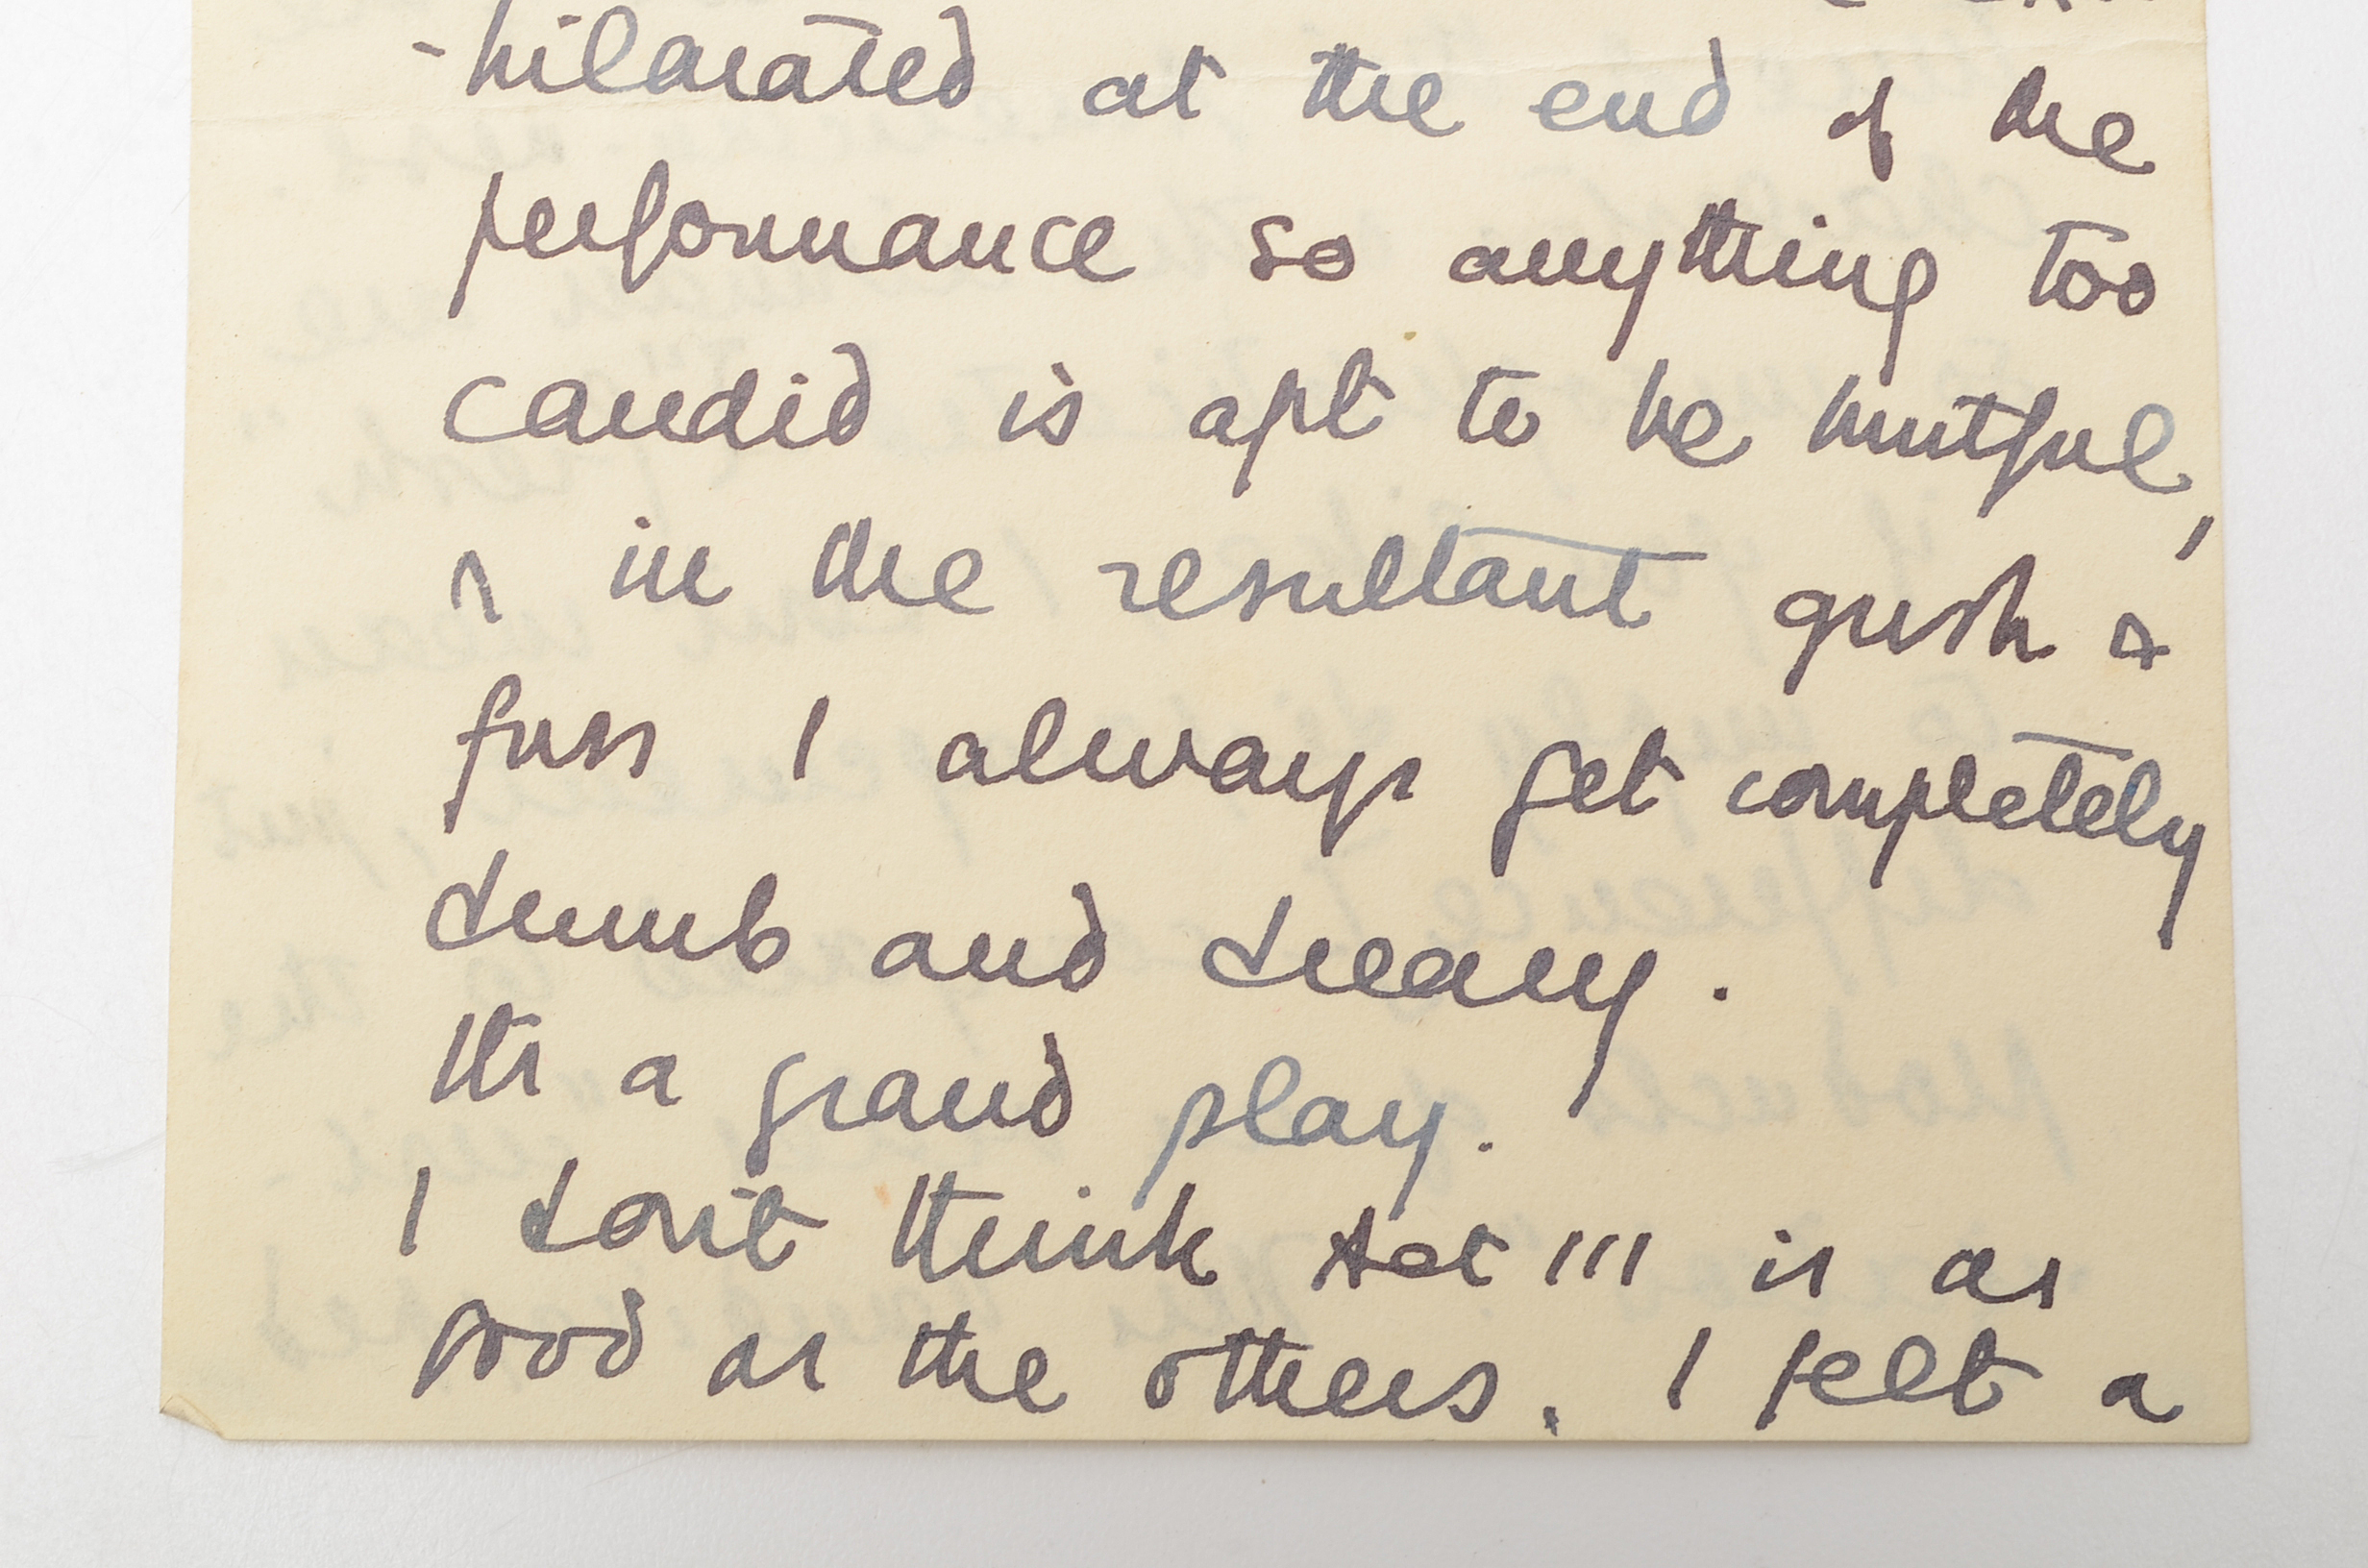 -hilarated at the end of the
performance so anything too
candid is apt to be hurtful,
& in the resultant gush &
fuss I always get completely
dumb and dreary.
It's a grand play.
I don't think Act III is as
good as the others. I felt a